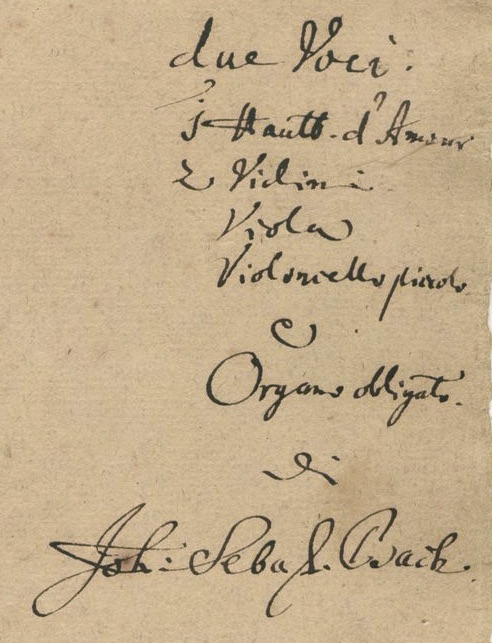 due Voci.
1 Hautb. d'Amour
2 Violini
Viola
Violoncello piccolo
e
Organo obligato.
di
Joh: Sebast. Bach.